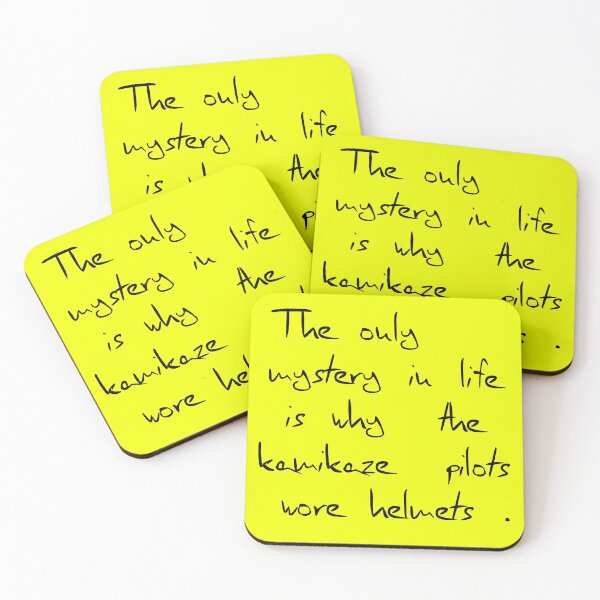 The only
mystery in life
is the
The only
mystery in life
is why the
kamikaze pilots
.
The only
mystery in life
is why the
kamikaze
wore hel
The only
mystery in life
is why the
kamikaze pilots
wore helmets .